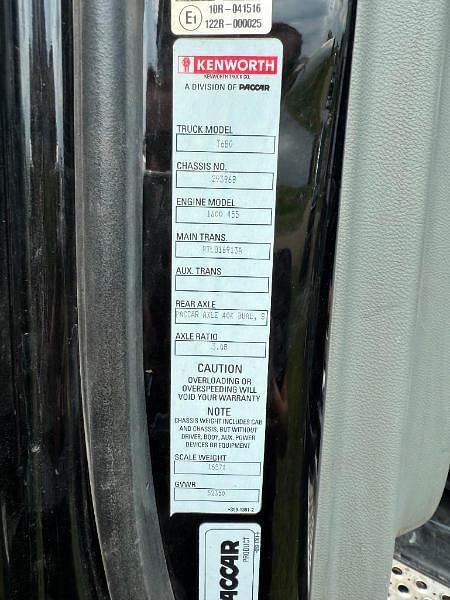 E1
10R-041516
122R-000025
KENWORTH
KENWORTH TRUCK CO.
A DIVISION OF PACCAR
TRUCK MODEL
T680
CHASSIS NO.
ENGINE MODEL
1600 455
MAIN TRANS.
AUX. TRANS
REAR AXLE
PACCAR AXLE 40K DUAL, S
AXLE RATIO
CAUTION
OVERLOADING OR
OVERSPEEDING WILL
VOID YOUR WARRANTY
NOTE
CHASSIS WEIGHT INCLUDES CAB
AND CHASSIS, BUT WITHOUT
DRIVER, BODY, AUX. POWER
DEVICES OR EQUIPMENT
SCALE WEIGHT
GVWR
52350
PACCAR
PRODUCT